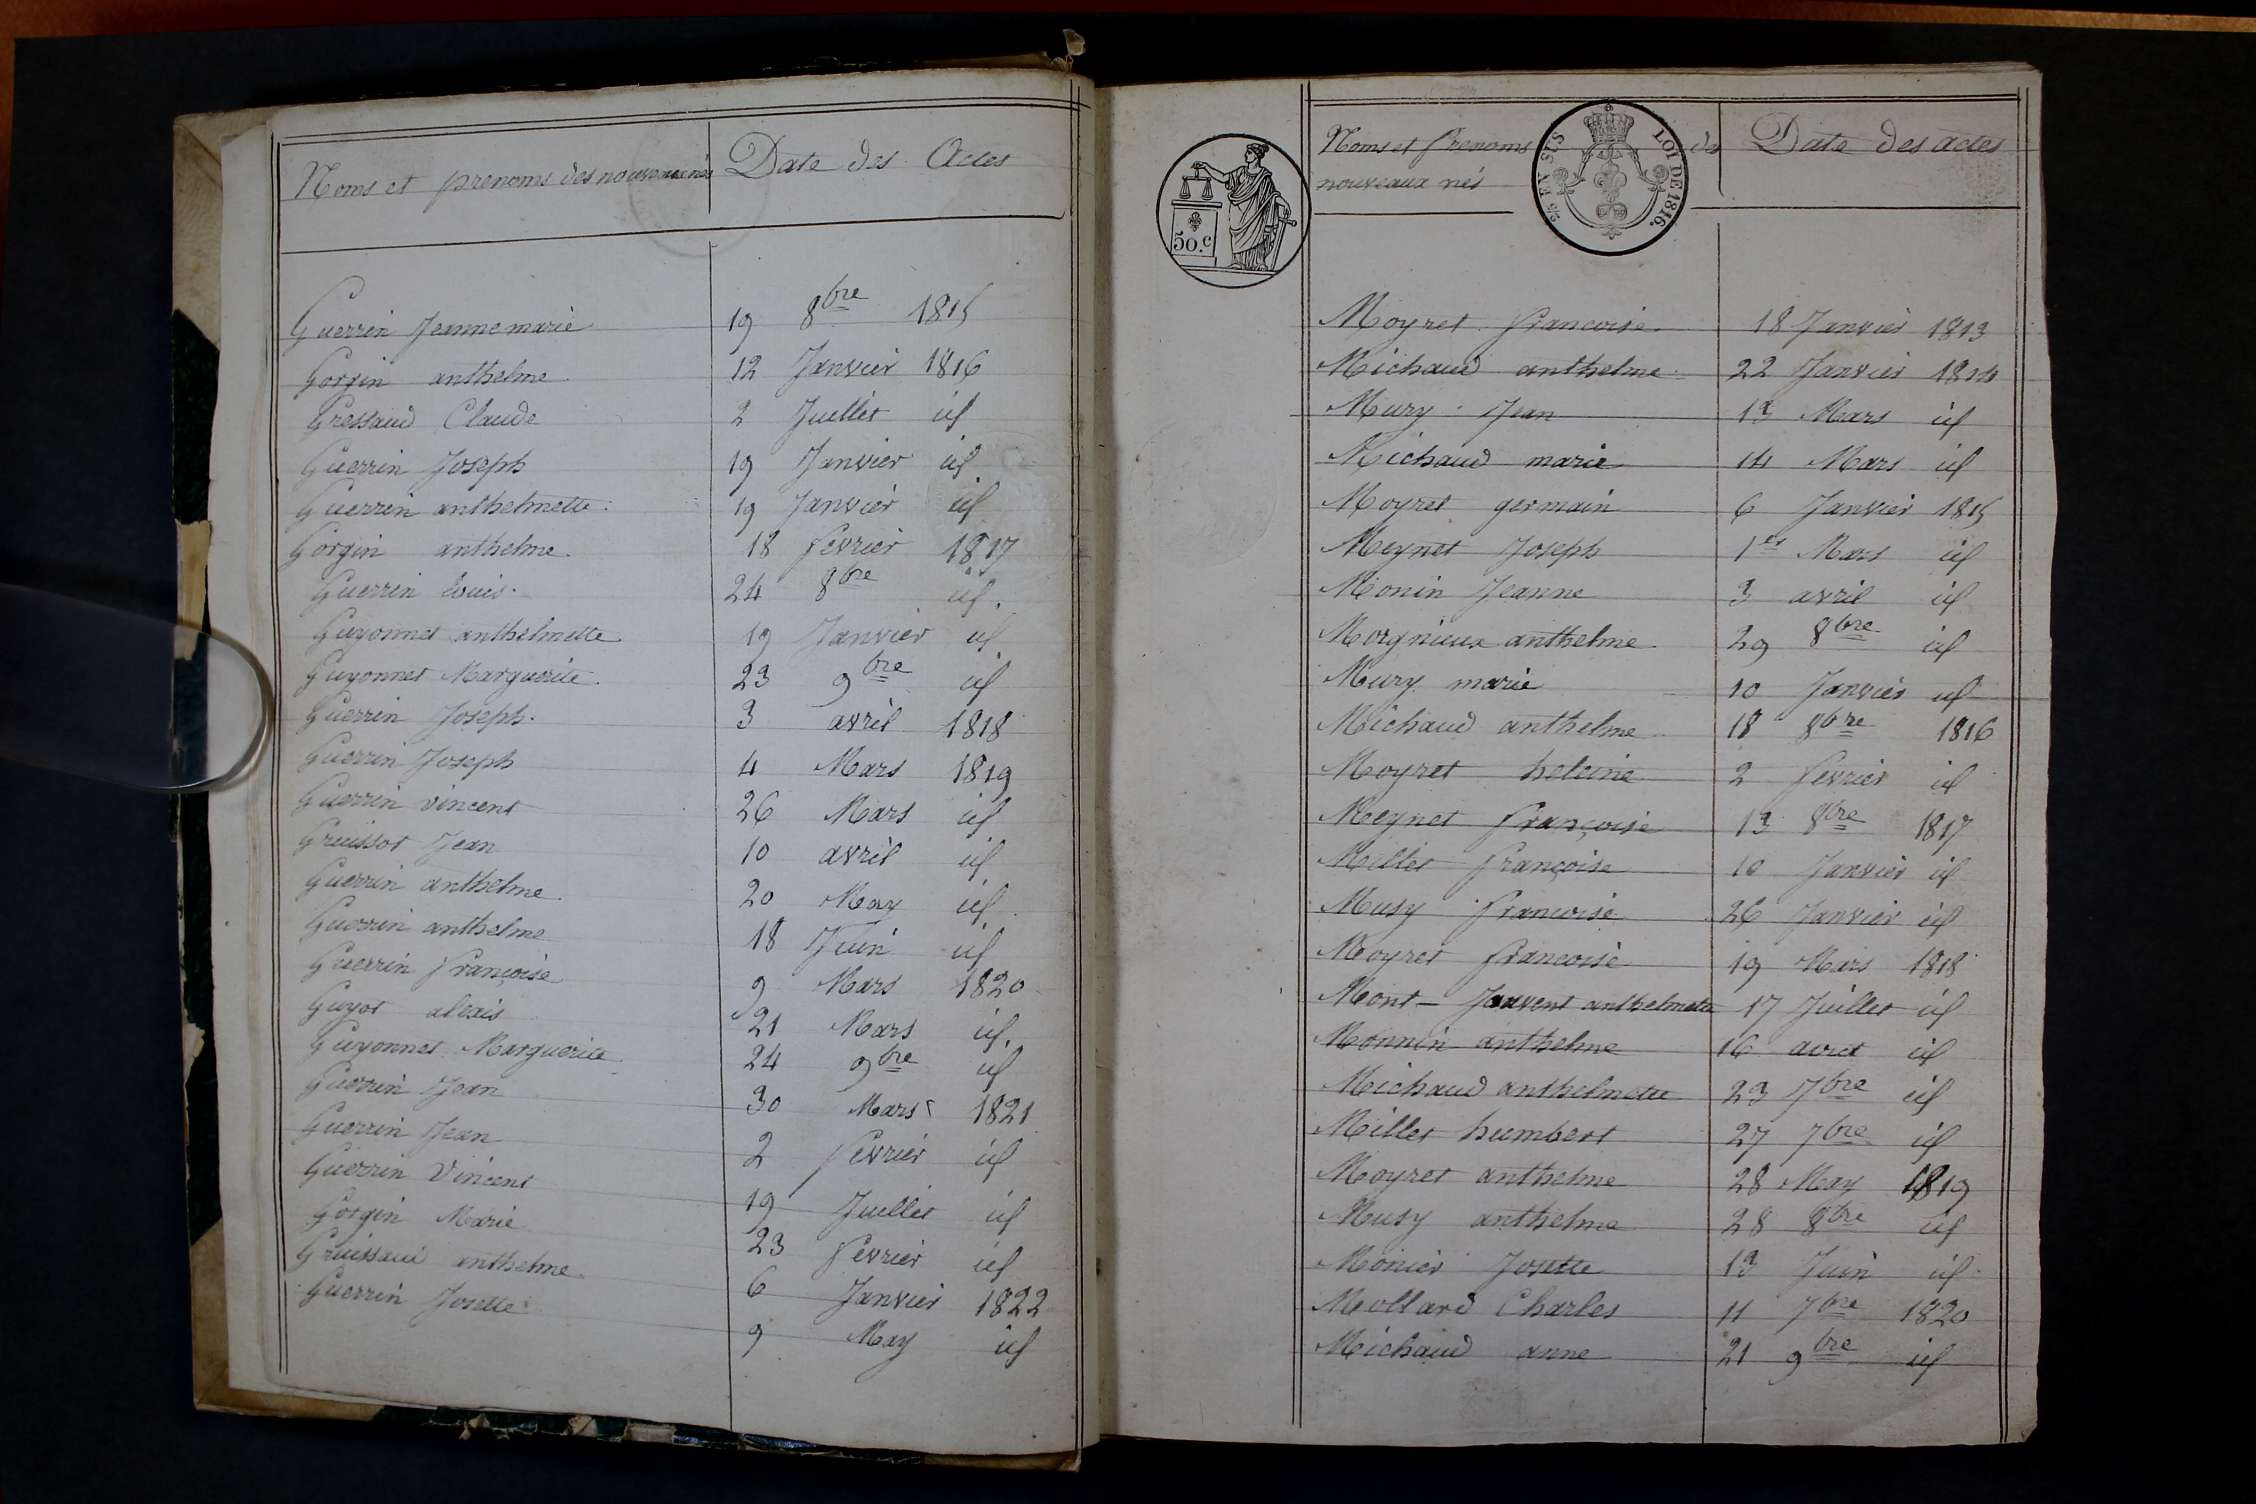 Noms et prenoms des nouveaux nés Date des Actes
Guerrin Jeanne marie 19 8bre 1815
Gorgin anthelme 12 Janvier 1816
Gressaud Claude 2 Juillet id
Guerrin Joseph 19 Janvier id
Guerrin anthelmette 19 Janvier id
Gorgin anthelme 18 fevrier 1817
Guerrin Louis 24 8bre id
Guyonnet anthelmette 19 Janvier id
Guyonnet Marguerite 23 9bre id
Guerrin Joseph 3 avril 1818
Guerrin Joseph 4 Mars 1819
Guerrin vincent 26 Mars id
Gruissot Jean 10 avril id
Guerrin anthelme 20 May id
Guerrin anthelme 18 Juin id
Guerrin françoise 9 Mars 1820
Guyot alexis 21 Mars id
Guyonnet Marguerite 24 9bre id
Guerrin Jean 30 Mars 1821
Guerrin Jean 2 fevrier id
Guerrin Vincent 19 Juillet id
Gorgin Marie 23 fevrier id
Gruissaud anthelme 6 Janvier 1822
Guerrin Josette 9 May id
50.c
Noms et Prenoms des Date des actes
nouveaux nés
LOI DE 1816.
EN SUS
Moyret francoise 18 Janvier 1813
Michaud anthelme 22 Janvier 1814
Mury Jean 13 Mars id
Michaud marie 14 Mars id
Moyret germain 6 Janvier 1815
Meynet Joseph 1er Mars id
Monin Jeanne 3 avril id
Morgnieux anthelme 29 8bre id
Mury marie 10 Janvier id
Michaud anthelme 18 8bre 1816
Moyret heleine 2 fevrier id
Meynet françoise 13 8bre 1817
Millet françoise 10 Janvier id
Musy francoise 26 Janvier id
Moyret francoise 19 Mars 1818
Mont-Jouvent anthelmette 17 Juillet id
Monnin anthelme 16 avril id
Michaud anthelmette 23 7bre id
Millet humbert 27 7bre id
Moyret anthelme 28 May 1819
Musy anthelme 28 8bre id
Monier Josette 13 Juin id
Mollard Charles 11 7bre 1820
Michaud anne 21 9bre id